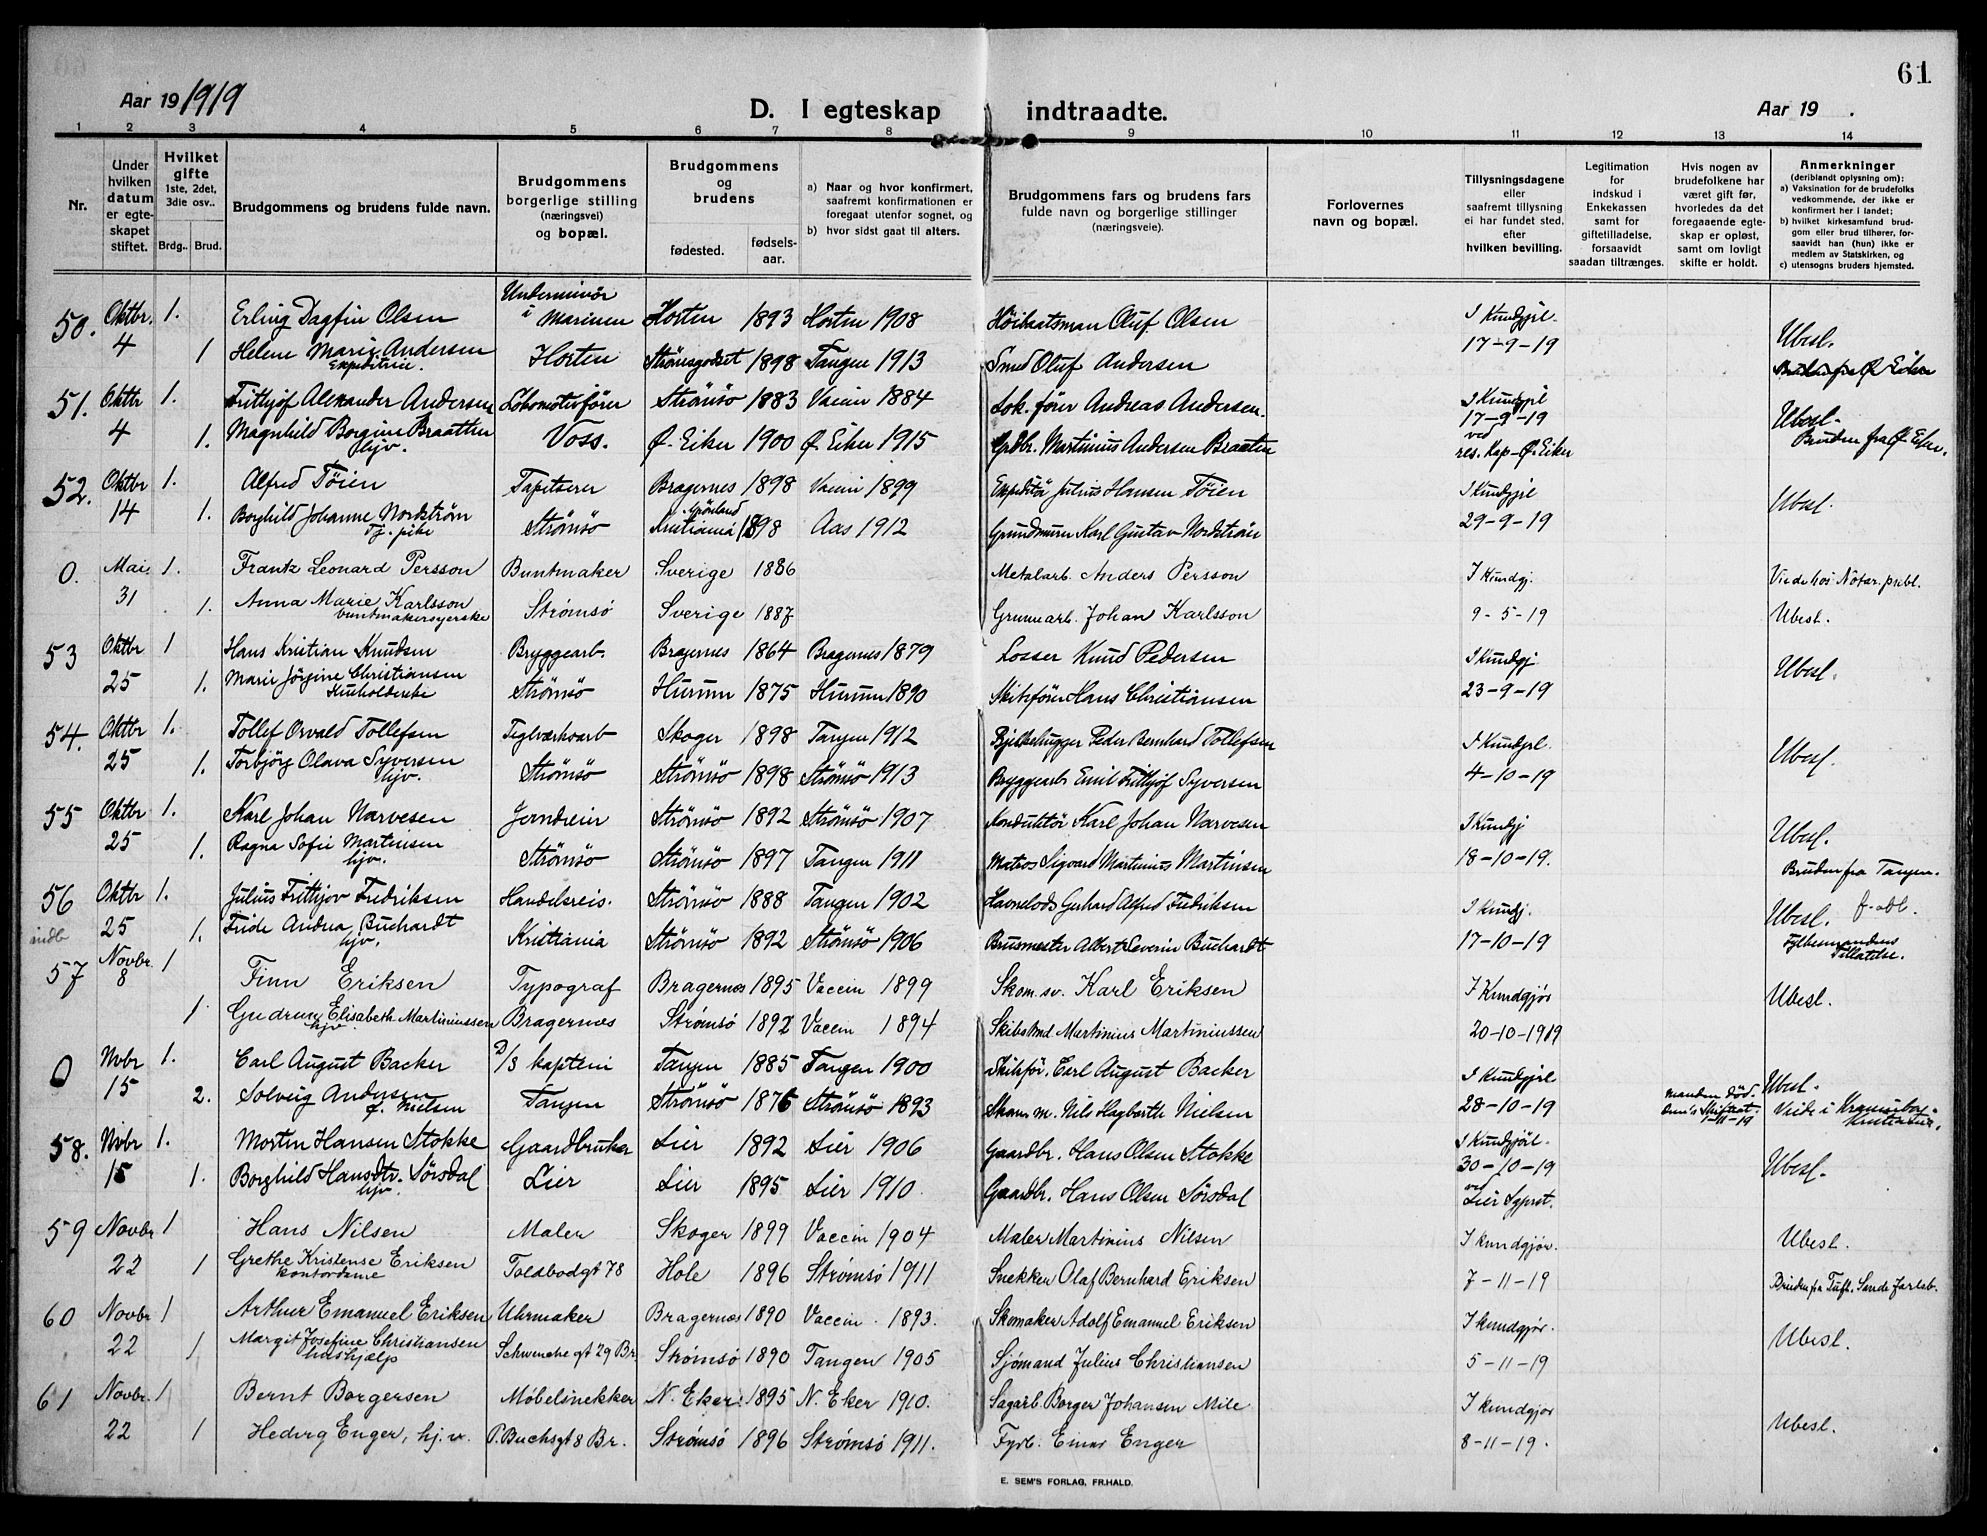 61
Aar 19 1919
D. I egteskap indtraadte.
Aar 19 .
1 2 3 4 5 6 7 8 9 10 11 12 13 14
Nr.
Under hvilken datum er egteskapet stiftet.
Hvilket gifte 1ste, 2det, 3die osv.. Brdg.. Brud.
Brudgommens og brudens fulde navn.
Brudgommens borgerlige stilling (næringsvei) og bopæl.
Brudgommens og brudens fødested. fødselsaar.
a) Naar og hvor konfirmert, saafremt konfirmationen er foregaat utenfor sognet, og
b) hvor sidst gaat til alters.
Brudgommens fars og brudens fars fulde navn og borgerlige stillinger (næringsveie).
Forlovernes navn og bopæl.
Tillysningsdagene eller saafremt tillysning ei har fundet sted, efter hvilken bevilling.
Legitimation for indskud i Enkekassen samt for giftetilladelse, forsaavidt saadan tiltrænges.
Hvis nogen av brudefolkene har været gift før, hvorledes da det foregaaende egteskap er opløst, samt om lovligt skifte er holdt.
Anmerkninger (deriblandt oplysning om):
a) Vaksination for de brudefolks vedkommende, der ikke er konfirmert her i landet;
b) hvilket kirkesamfund brudgom eller brud tilhører, forsaavidt han (hun) ikke er medlem av Statskirken, og
c) utensogns bruders hjemsted.
50. Oktbr. 1. Erling Dagfin Olsen Underminör i Marinen Horten 1893 Horten 1908 Höibaatsman Oluf Olsen I Kundgjrl. Ubesl.
4 1 Helene Marie Andersen Ekspeditrice. Horten Strömsgodset 1898 Tangen 1913 Smed Oluf Andersen 17-9-19
51. Oktbr 1. Frithjof Alexander Andersen Lokomotivfører Strömsö 1883 Vaccin 1884 Lok. fører Andreas Andersen. I Kundgjrl 17-9-19 Ubesl.
4 1. Magnhild Borgine Braatten hjv. Voss. Ø. Eiker 1900 Ø. Eiker 1915 Grdbr. Martinius Andersen Braaten ved res. Kap. Ø. Eiker Bruden fra Ø. Eker.
52. Oktbr 1. Alfred Töien Tapetserer Bragernes 1898 Vaccin 1899 Ekspeditör Julius Hansen Töien I Kundgjrl Ubesl.
14 1. Borghild Johanne Nordström Tj. pike Strömsö Grönland Kristiania 1898 Aas 1912 Grundmurer Karl Gustav Nordström 29-9-19
0. Mai. 1. Frantz Leonard Persson Buntmaker Sverige 1886 Metalarb. Anders Persson I Kundgj. Viede hos Notar. publ.
31 1. Anna Marie Karlsson buntmakersyerske Strømsø Sverige 1887 Gruvearb. Johan Karlsson 9-5-19 Ubesl.
53 Oktbr 1 Hans Kristian Knudsen Bryggearb. Bragernes 1864 Bragernes 1879 Losser Knud Pedersen I Kundgj. Ubesl.
25 1. Marie Jörgine Christiansen Strömsö Hurum 1875 Hurum 1890 Skibsförer Hans Christiansen 23-9-19
54. Oktbr 1. Tollef Orvald Tollefsen Teglverksarb Skoger 1898 Tangen 1912 Bjelkehugger Peder Bernhard Tollefsen I Kundgjrl. Ubesl.
25 1. Torbjörg Olava Syversen hjv. Strömsö Strömsö 1898 Strömsö 1913 Bryggearb Emil Frithjof Syversen 4-10-19
55 Oktbr 1. Karl Johan Narvesen Jerndreier Strömsö 1892 Strömsö 1907 Konduktör Karl Johan Narvesen I Kundgj Ubesl.
25 1. Ragna Sofie Martinsen hjv. Strömsö Strömsö 1897 Tangen 1911 Matros Sigvard Martinius Martinsen 18-10-19. Bruden fra Tangen.
56 Oktbr 1. Julius Frithjov Fredriksen Handelsreis. Strömsö 1888 Tangen 1902 Havnelods Gerhard Alfred Fredriksen I Kundj. Ubesl.
indb 25 1. Fride Andrea Buchardt hjv. Kristiania Strömsö 1892 Strömsö 1906 Brusmester Albert Severin Buchardt 17-10-19 Fylkesmandens Tillatelse.
57 Novbr. 8 1 Finn Eriksen Typograf Bragernes 1895 Vaccin 1899 Skom. sv. Karl Eriksen I Kundgjør Ubesl.
1 Gudrun Elisabeth Martiniussen hjv. Bragernes Strømsö 1892 Vaccin 1894 Skibstmd. Martinius Martiniussen 20-10-1919
0 Nvbr 1. Carl August Backer D/S kaptein Tangen 1885 Tangen 1900 Skibsför. Carl August Backer I Kundgjrl Ubesl.
15 2. Solveig Andersen f. Nielsen Tangen Strömsö 1876 Strömsö 1893 Skom. m. Nils Hagbarth Nielsen 28-10-19 Manden död. Viede i
58. Nvbr 1. Morten Hansen Stokke Gaardbruker Lier 1892 Lier 1906 Gaardbr. Hans Olsen Stokke I Kundgjörl. 30-10-19 Ubesl.
15 1. Borghild Hansdtr. Sörsdal hjv. Lier Lier 1895 Lier 1910. Gaardbr. Hans Olsen Sörsdal ved Lier Sgprst.
59 Novbr 1 Hans Nilsen Maler Skoger 1899 Vaccin 1904 Maler Martinius Nilsen I kundgjør. Ubesl.
22 1 Grethe Kristense Eriksen kontordame Toldbodgt 78 Hole 1896 Strømsö 1911 Snekker Olaf Bernhard Eriksen 7-11-19 Bruden fra Tuft. Sande Jarlsb.
60 Novbr 1 Arthur Emanuel Eriksen Uhrmaker Bragernes 1890 Vaccin. 1893. Skomaker Adolf Emanuel Eriksen I kundgjør. Ubesl.
22 1 Margit Josefine Christiansen hushjælp Schwencke gt 29 Br. Strømsö 1890 Tangen 1905 Sjømand Julius Christiansen 5-11-19
61 Novbr. 1 Bernt Borgersen Møbelsnekker N. Eker. 1895 N. Eker 1910. Sagarb. Borger Johansen Mile I kundgjør Ubesl.
22 1 Hedvig Enger, hj.v. P. Buchsgt 8 Br. Strømsö 1896 Strømsö 1911. Fyrb. Einar Enger 8-11-19.
E. SEM'S FORLAG, FR.HALD.